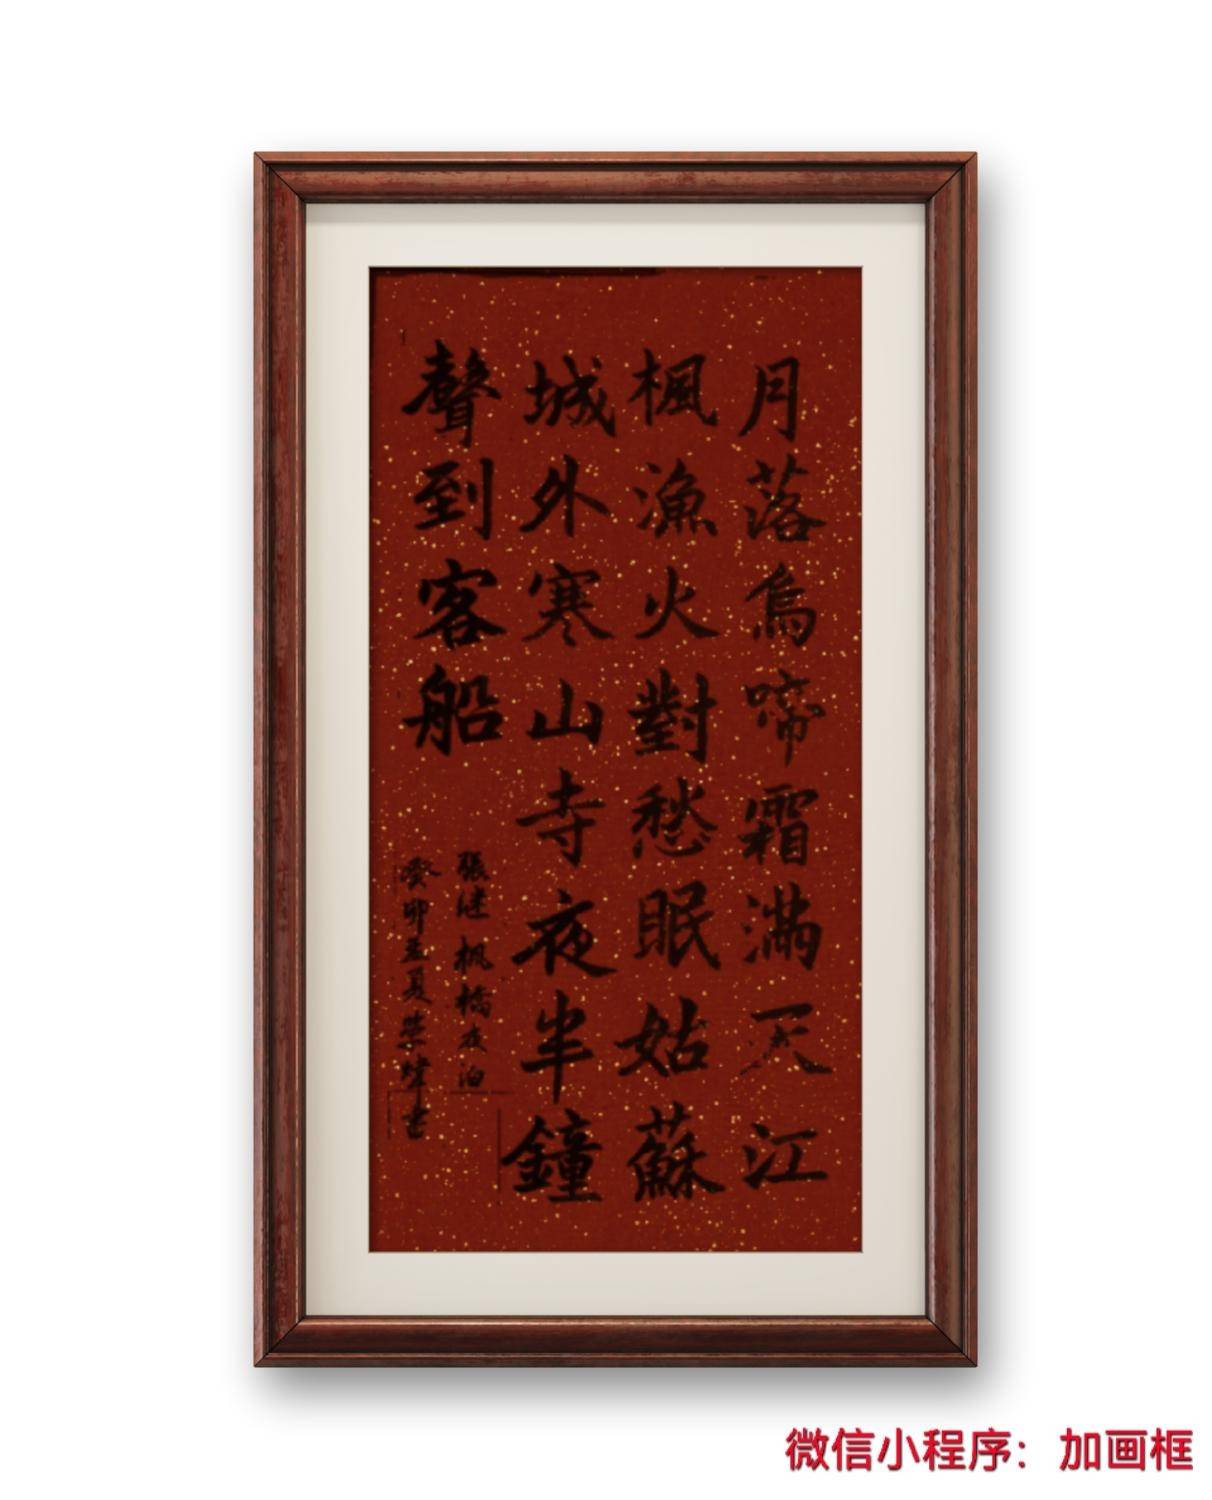 月落烏啼霜滿天江
楓漁火對愁眠姑蘇
城外寒山寺夜半鐘
聲到客船
張继枫橋夜泊
癸卯孟夏荣煒书
微信小程序：加画框